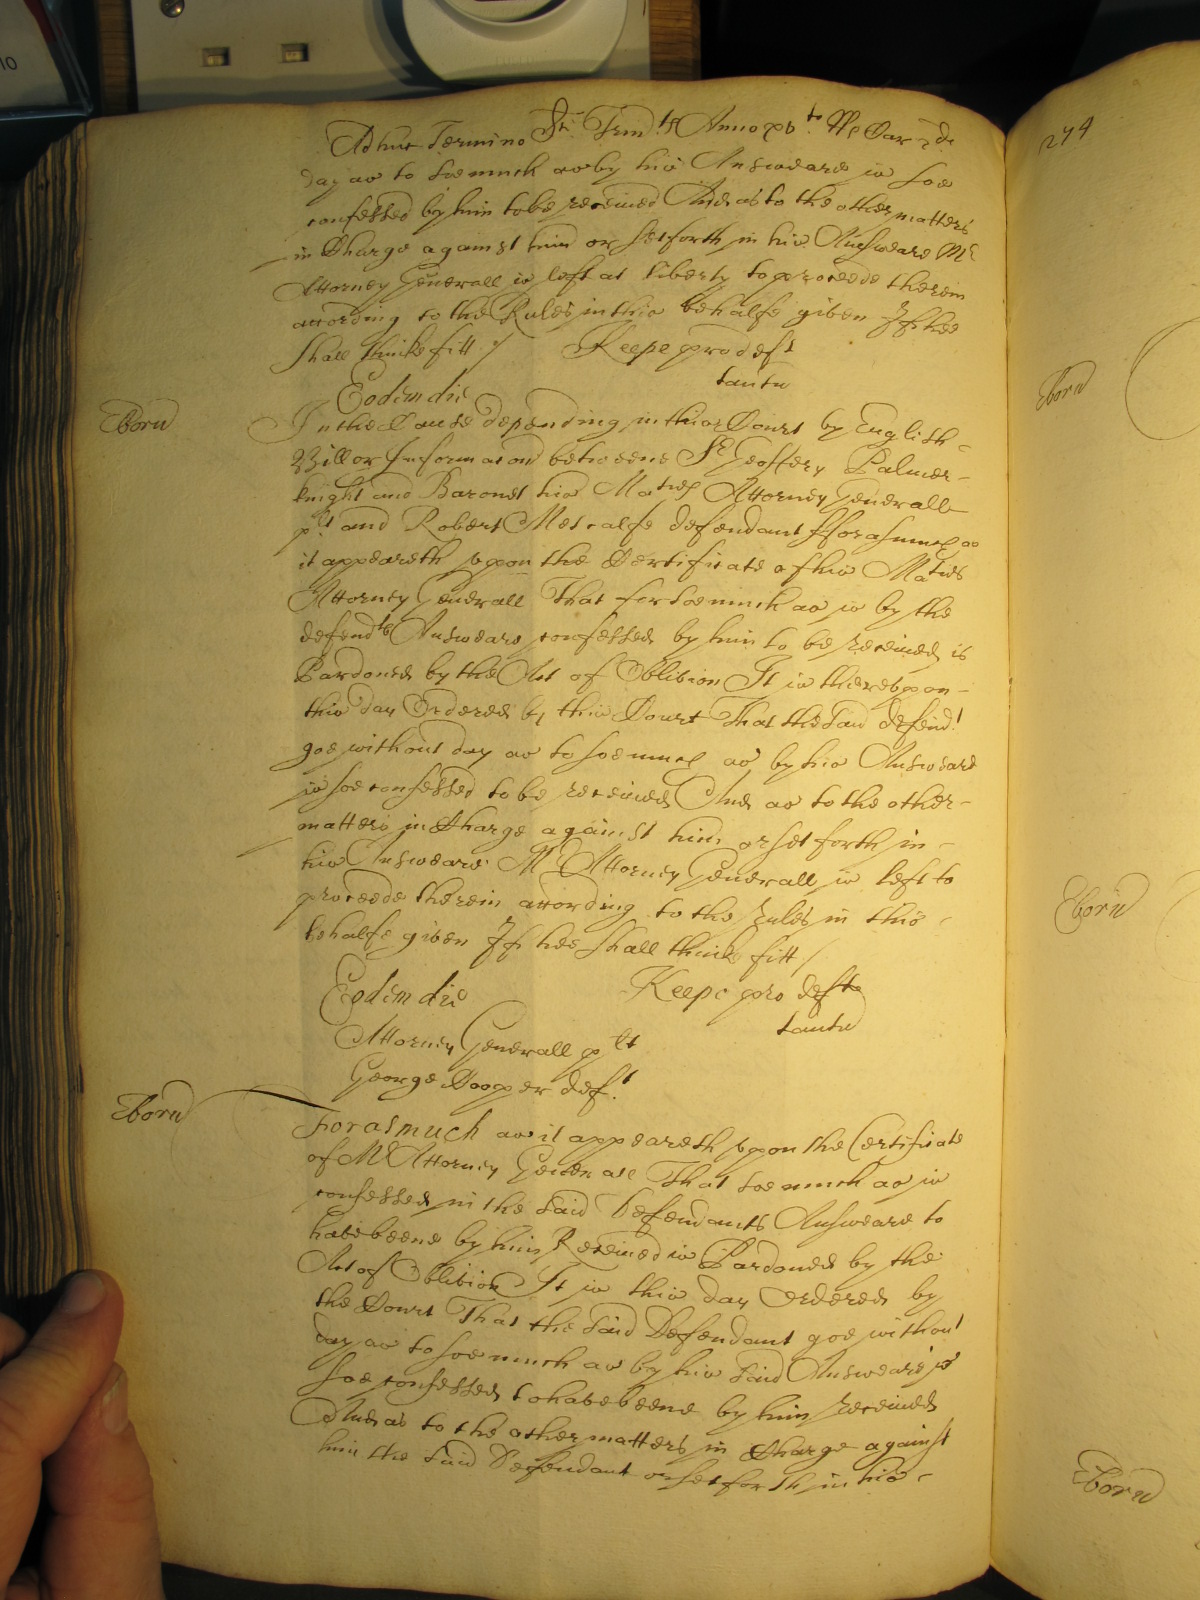 Adhuc Termino Ste Trin
274
day as to soe much as by his Answeare is soe
confessed by him to be received And as to the other matters
in Charge against him or set forth in his Answeare Mr
Attorney Generall is left at liberty to proceede therein
according to the Rules in this behalfe given If hee
shall thinke fitt /
Keepe pro deft
tantu
Eodem die
Eboru
In the Cause depending in this Court by English
Bill or Informacon betweene Sr Geoffery Palmer
knight and Baronet his Maties Attorney Generall
plt and Robert Metcalfe defendant fforasmuch as
it appeareth vpon the Certificate of his Maties
Attorney Generall That for soe much as is by the
defendts Answeare confessed by him to be received is
Pardoned by the Act of Oblivion It is therevpon
this day Ordered by this Court That the said defendt
goe without day as to soe much as by his Answeare
is soe confessed to be received And as to the other
matters in Charge against him or set forth in
his Answeare Mr Attorney Generall is left to
proceede therein according to the Rules in this
behalfe given If hee shall thinke fitt /
Eodem die
Keepe pro defte
tantu
Attorney Generall plt
George Hooper deft
Eboru
Forasmuch as it appeareth vpon the Certificate
of Mr Attorney Generall That soe much as is
confessed in the said Defendants Answeare to
have beene by him Received is Pardoned by the
Act of Oblivion It is this day Ordered by
the Court That the said Defendant goe without
day as to soe much as by his said Answeare is
soe confessed to have beene by him received
And as to the other matters in Charge against
him the said Defendant or set forth in his
Eboru
Eboru
Eboru